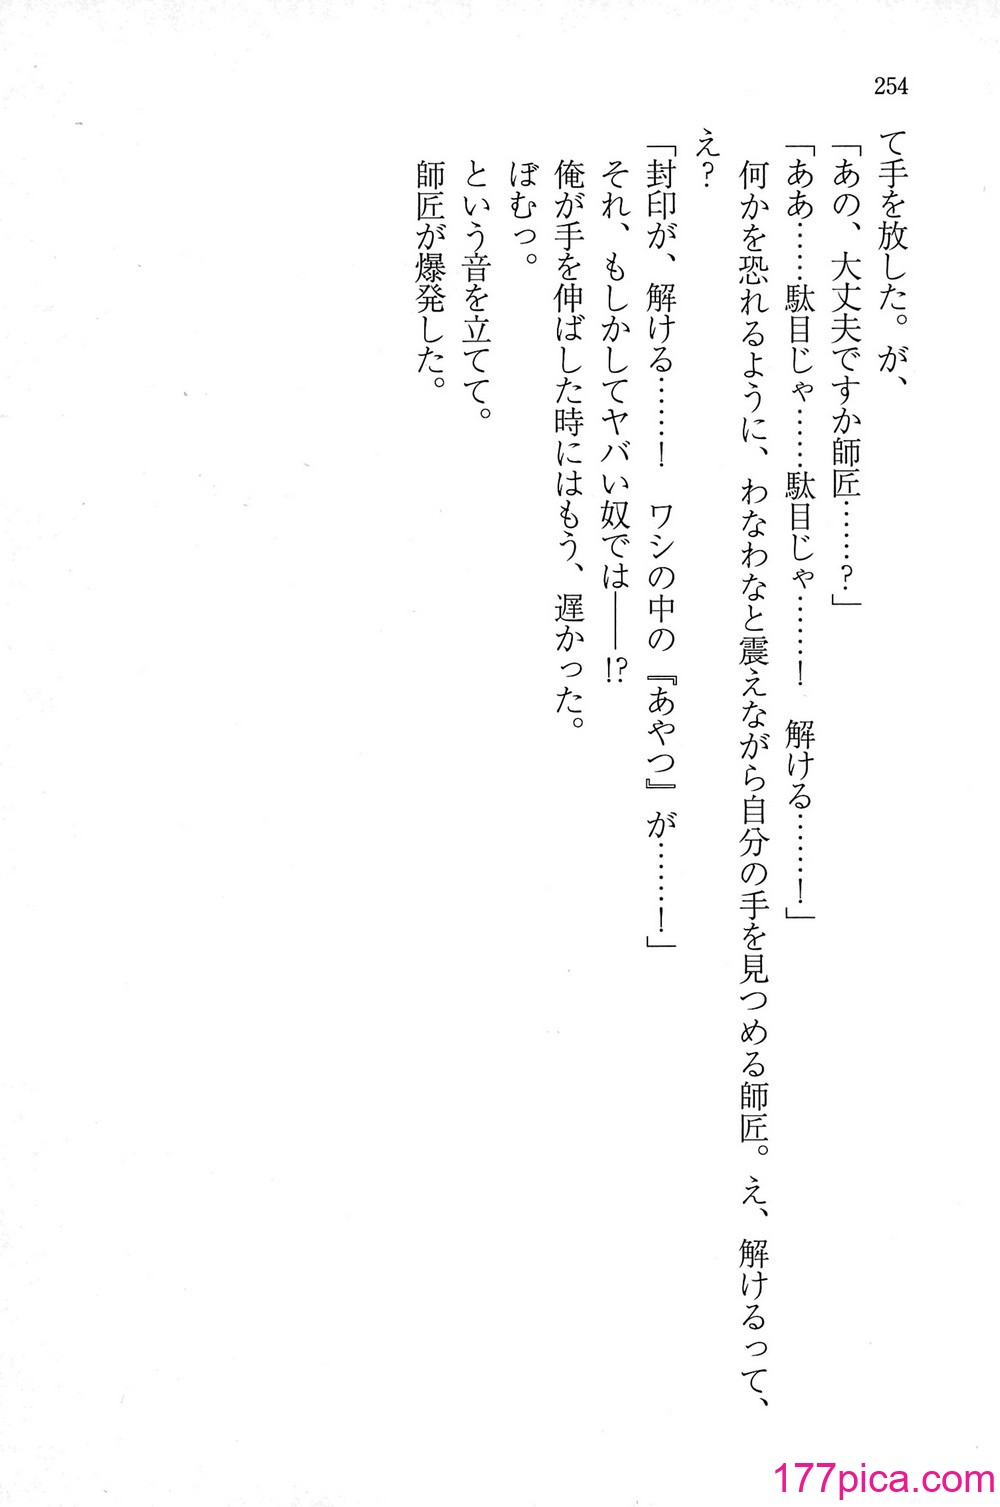 254
て手を放した。が、
「あの、大丈夫ですか師匠……？」
「ああ……駄目じゃ……駄目じゃ……！　解ける……！」
何かを恐れるように、わなわなと震えながら自分の手を見つめる師匠。え、解けるって、
え？
「封印が、解ける……！　ワシの中の『あやつ』が……！」
それ、もしかしてヤバい奴では――!?
俺が手を伸ばした時にはもう、遅かった。
ぼむっ。
という音を立てて。
師匠が爆発した。
177pica.com